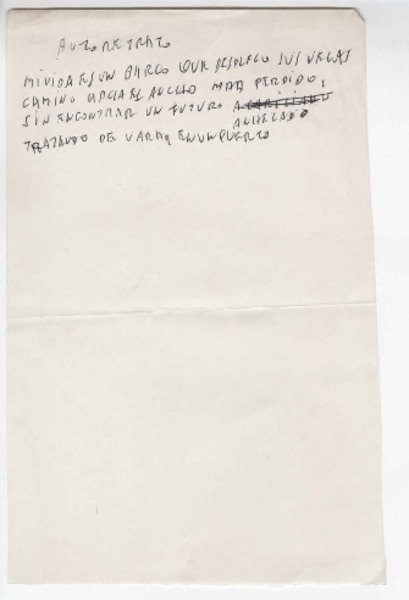 AUTORETRATO
MI VIDA ES UN BARCO QUE DESPLEGO SUS VELAS
CAMINO HACIA EL ANCHO MAR PERDIDO,
SIN ENCONTRAR UN FUTURO
ANHELADO
TRATANDO DE VARAR EN UN PUERTO